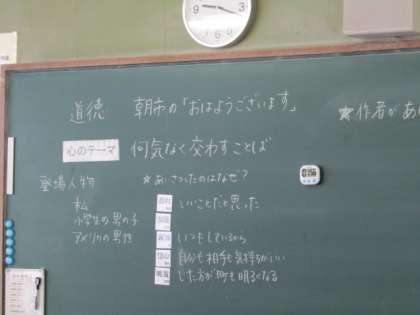 道徳 朝市の「おはようございます」
★作者があ
心のテーマ 何気なく交わすことば
登場人物
私
小学生の男の子
アメリカの男性
★あいさつしたのはなぜ?
いいことだと思った
いつもしているから
自分も相手も気持ちがいい
した方が町も明るくなる